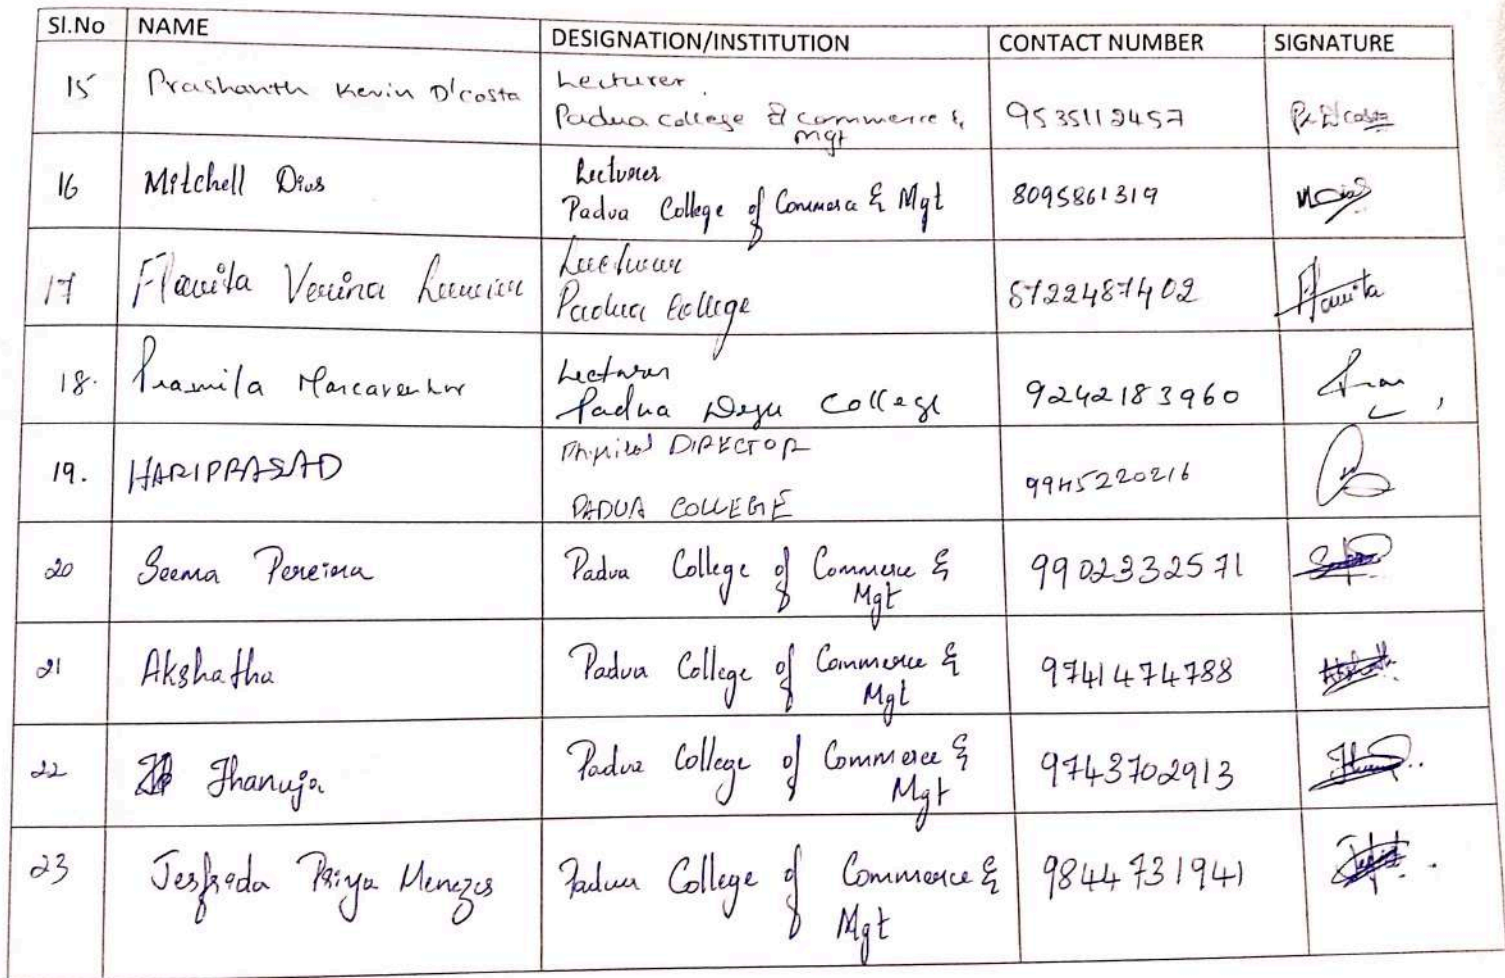 Sl.No NAME DESIGNATION/INSTITUTION CONTACT NUMBER SIGNATURE
15 Prashanth Kevin D'costa Lecturer
Padua college of commerce & 9535112457
Mgt
16 Mitchell Dias Lecturer
Padua College of Commerce & Mgt 8095861319
17 Flavita Verina Lecturer
Padua College 8722487402 Flavita
18. Pramila Lecturer
Padua Degree College 9242183960
19. HARIPRASAD Physical DIRECTOR
PADUA COLLEGE 9945220216
20 Seema Pereira Padua College of Commerce & 9902332571
Mgt
21 Akshatha Padua College of Commerce & 9741474788
Mgt
22 Jhanuja Padua College of Commerce & 9743702913
Mgt
23 Jesfreda Priya Menezes Padua College of Commerce & 9844731941
Mgt